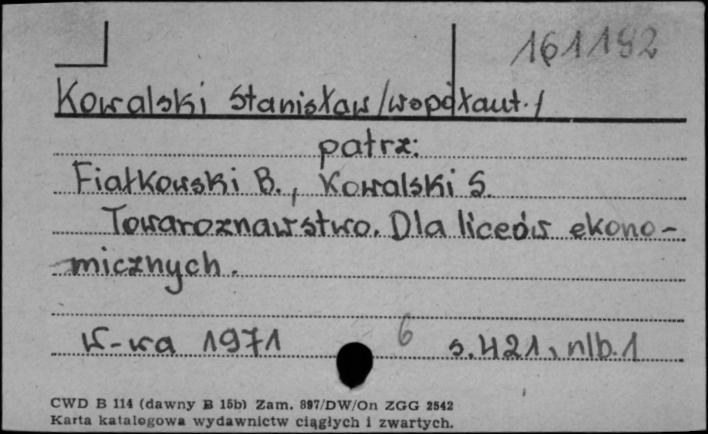 161192
Kowalski Stanisław /współaut./
patrz:
Fiałkowski B., Kowalski S.
Towaroznawstwo. Dla liceów ekono-
micznych.
W-wa 1971 6 s. 421, nlb. 1
CWD B 114 (dawny B 15b) Zam. 897/DW/On ZGG 2542
Karta katalogowa wydawnictw ciągłych i zwartych.